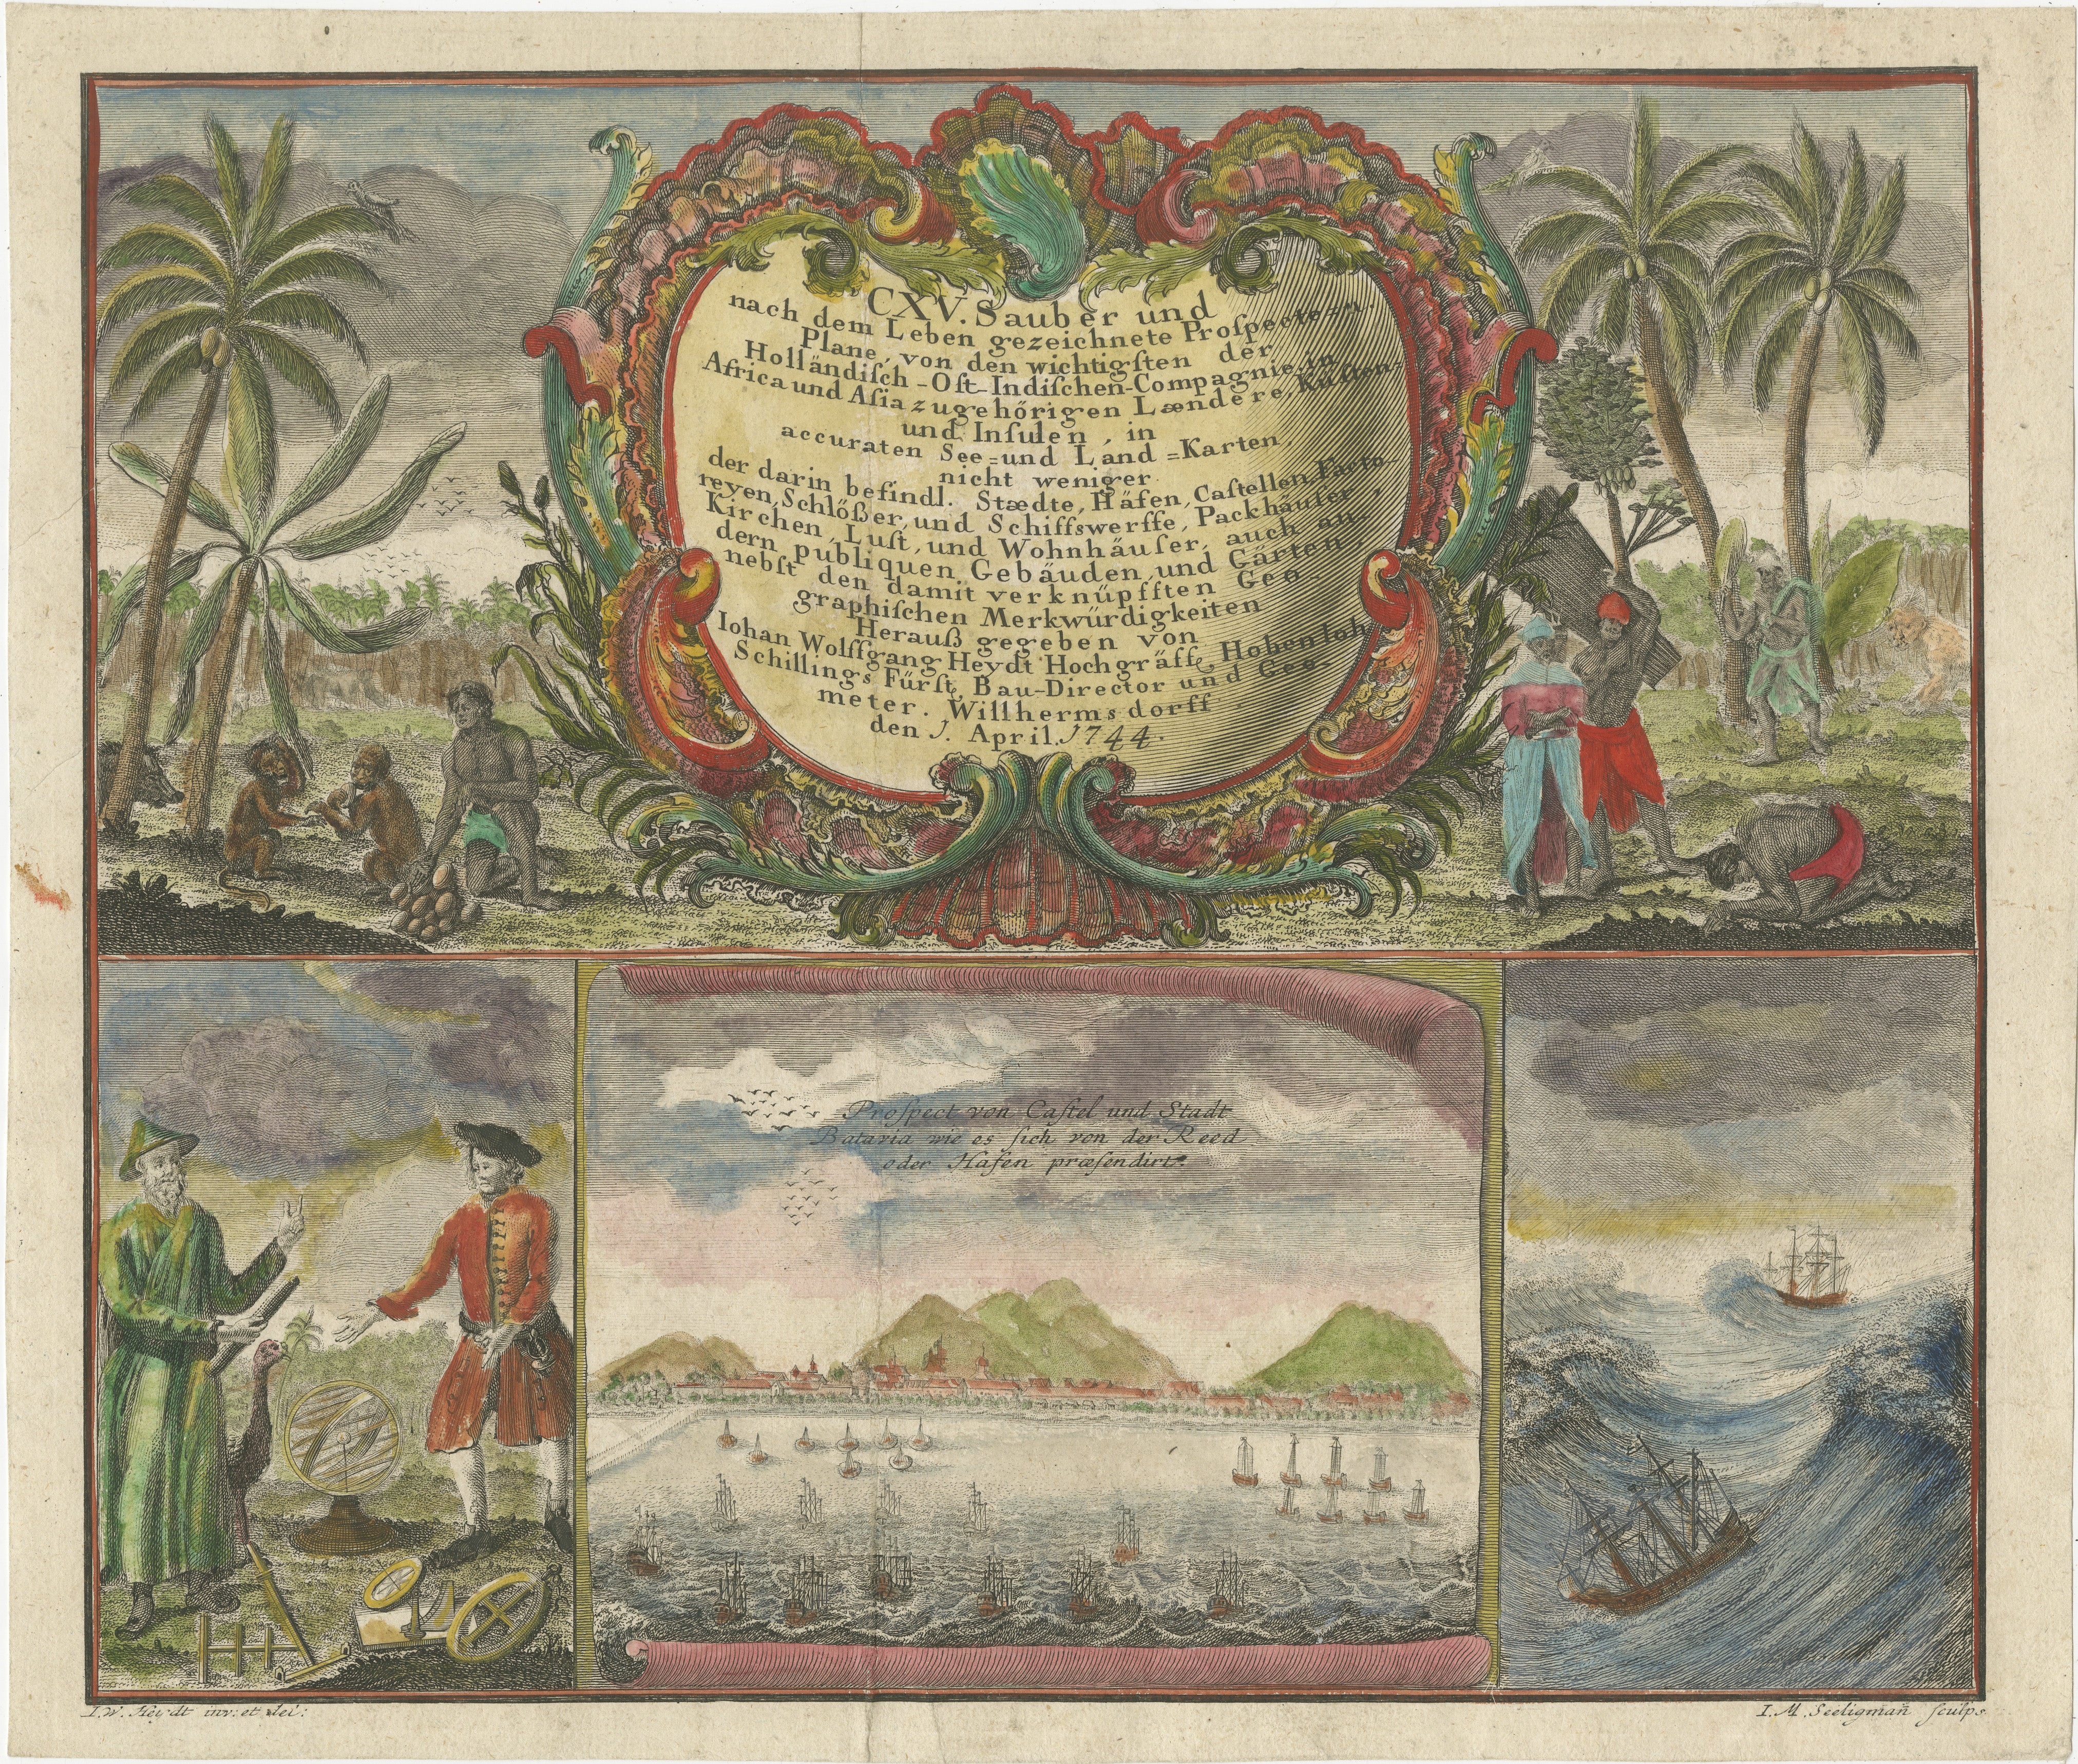 CXV. Sauber und
nach dem Leben gezeichnete Proſpecte zu
Plane, von den wichtigſten der
Holländiſch-Oſt-Indiſchen-Compagnie, in
Africa und Aſia zugehörigen Lændere, Küſten-
und Inſulen, in
accuraten See=und Land=Karten
nicht weniger
der darin befindl. Stædte, Häfen, Caſtellen, Facto
reyen, Schlößer, und Schiffswerffe, Packhäuſer,
Kirchen, Luſt, und Wohnhäuſer, auch an
dern publiquen Gebäuden, und Gärten,
nebſt den damit verknüpfften Geo-
graphiſchen Merkwürdigkeiten
Herauß gegeben von
Iohan Wolffgang Heydt Hochgräffl. Hohenloh
Schillings Fürſt, Bau-Director und Geo-
meter. Willhermsdorff
den 1. April. 1744.
Proſpect von Caſtel und Stadt
Batavia wie es ſich von der Reed
oder Hafen præſendirt.
I. W. Heydt inv: et del:
I. M. Seeligman̄ ſculps